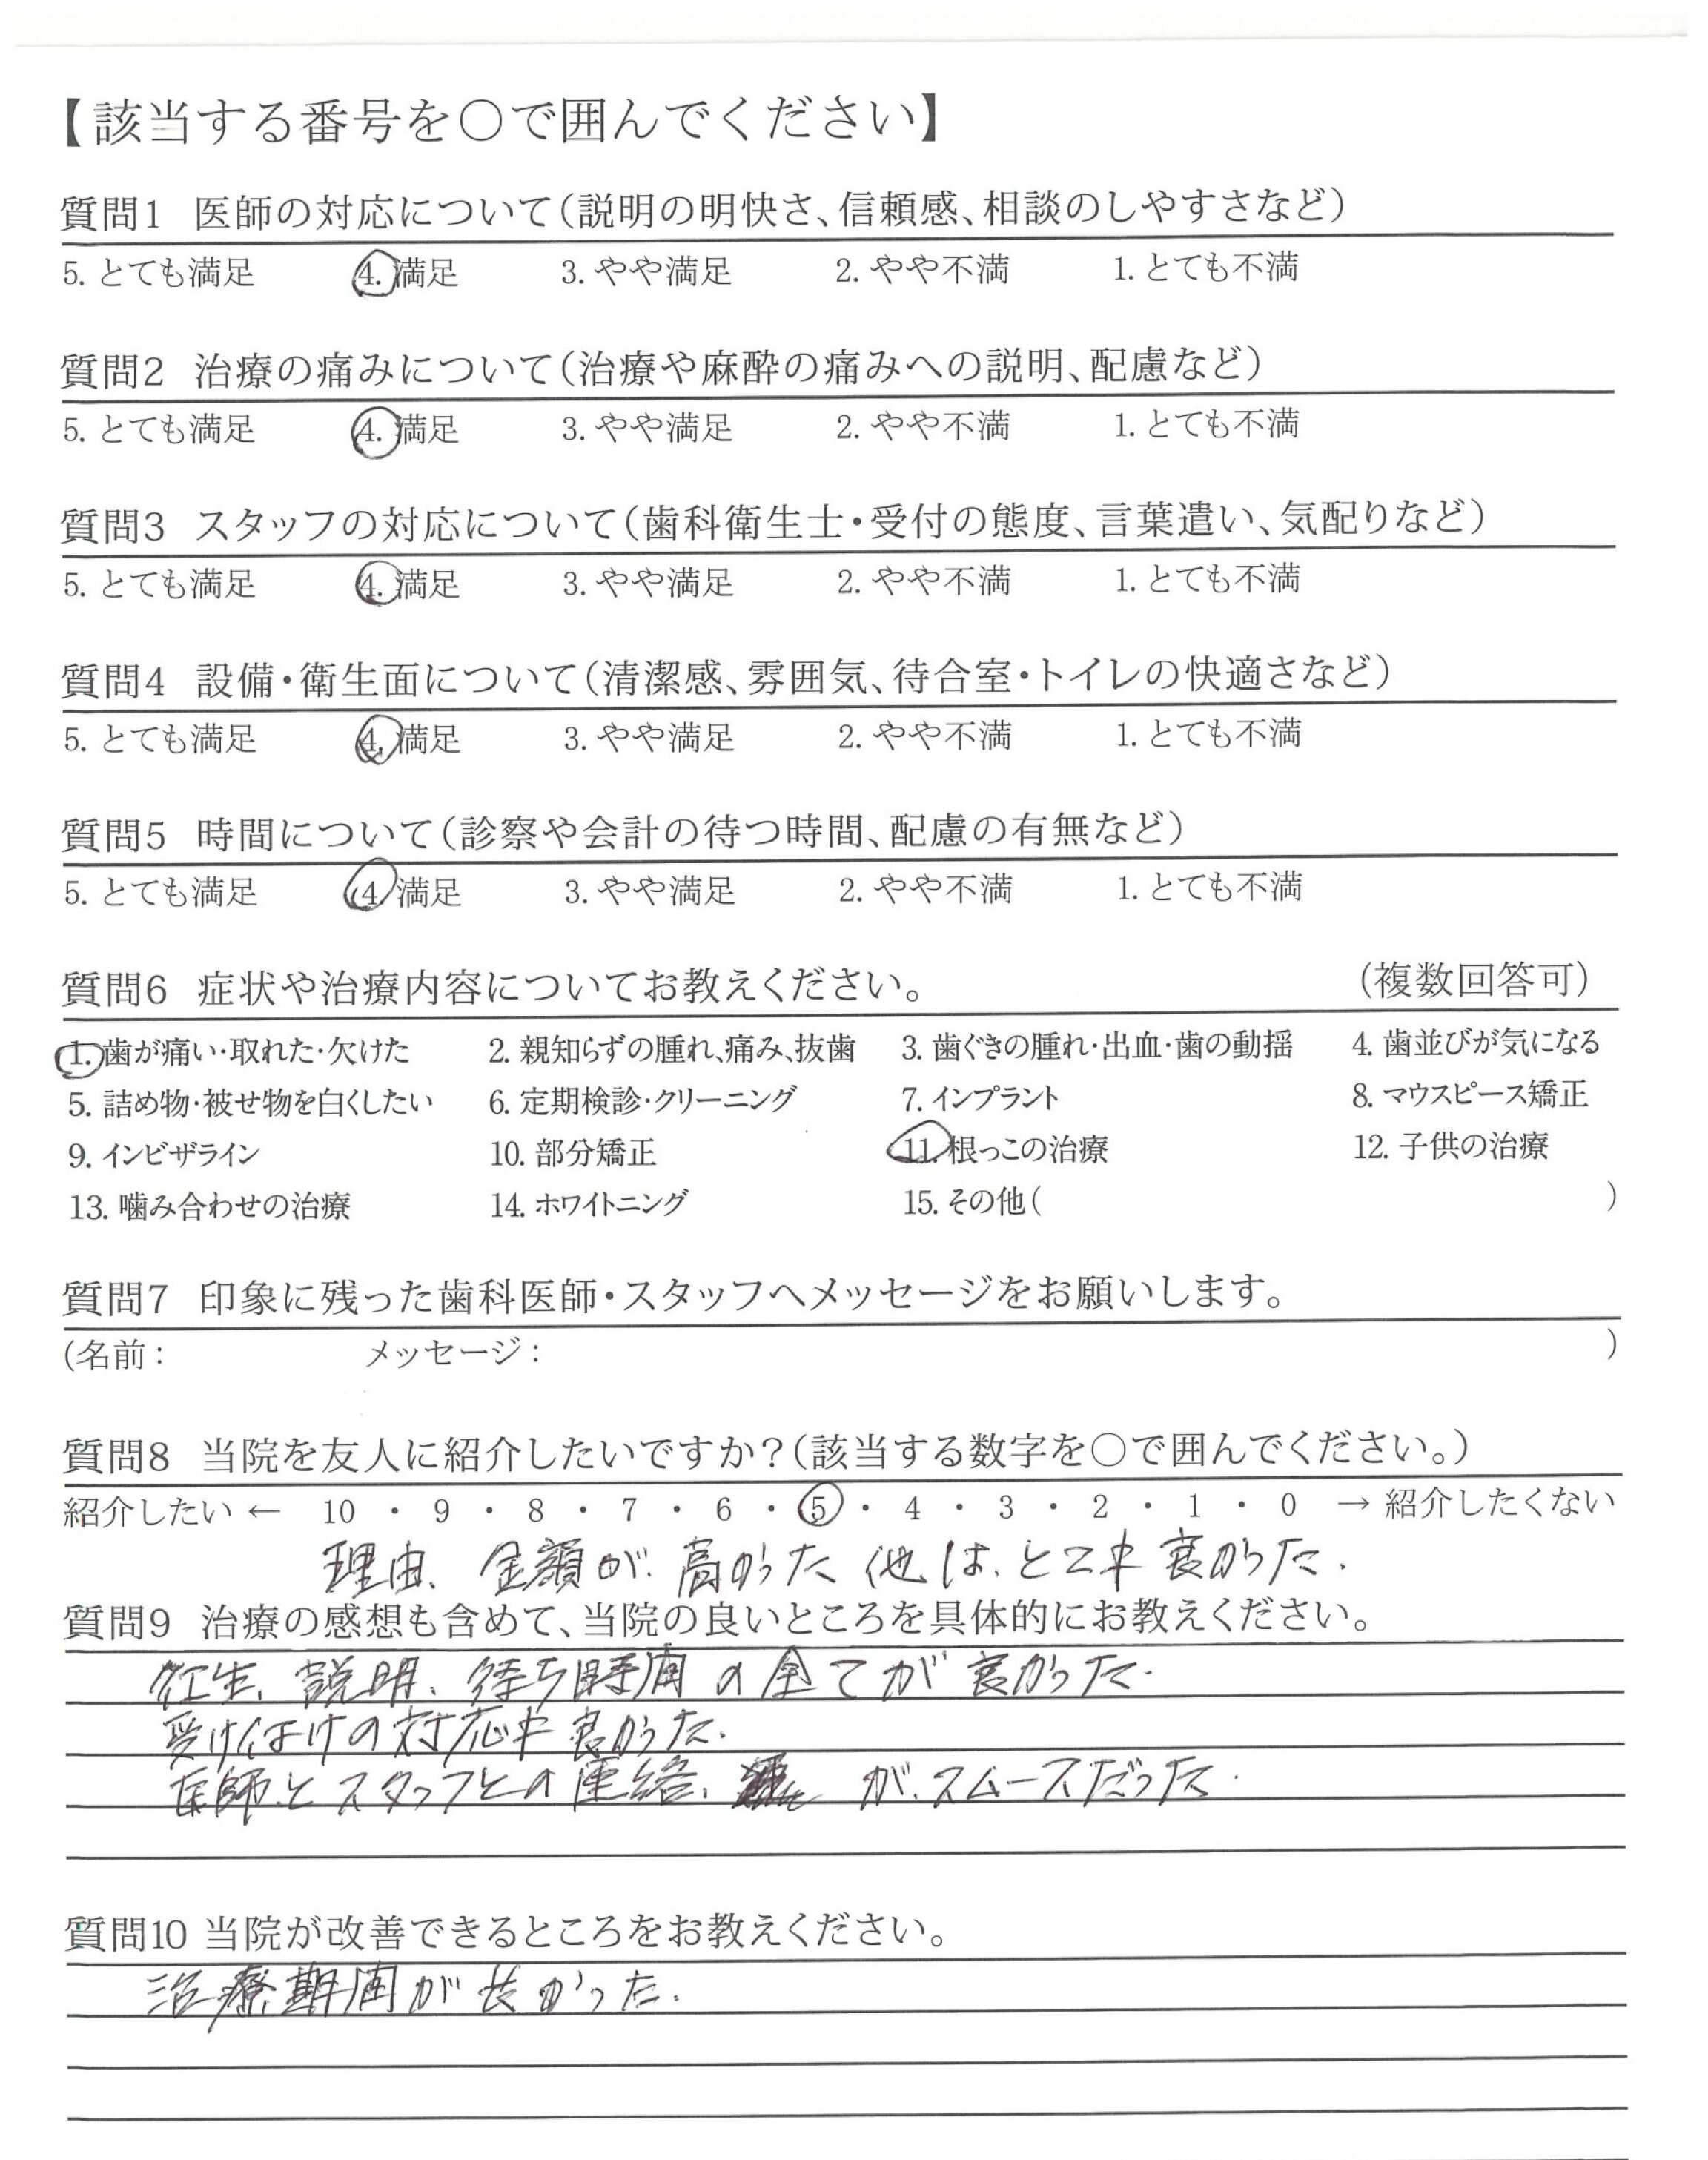 【該当する番号を〇で囲んでください】
質問1 医師の対応について(説明の明快さ、信頼感、相談のしやすさなど)
5. とても満足 4. 満足 3. やや満足 2. やや不満 1. とても不満
質問2 治療の痛みについて(治療や麻酔の痛みへの説明、配慮など)
5. とても満足 4. 満足 3. やや満足 2. やや不満 1. とても不満
質問3 スタッフの対応について(歯科衛生士・受付の態度、言葉遣い、気配りなど)
5. とても満足 4. 満足 3. やや満足 2. やや不満 1. とても不満
質問4 設備・衛生面について(清潔感、雰囲気、待合室・トイレの快適さなど)
5. とても満足 4. 満足 3. やや満足 2. やや不満 1. とても不満
質問5 時間について(診察や会計の待つ時間、配慮の有無など)
5. とても満足 4. 満足 3. やや満足 2. やや不満 1. とても不満
質問6 症状や治療内容についてお教えください。 (複数回答可)
1. 歯が痛い・取れた・欠けた 2. 親知らずの腫れ、痛み、抜歯 3. 歯ぐきの腫れ・出血・歯の動揺 4. 歯並びが気になる
5. 詰め物・被せ物を白くしたい 6. 定期検診・クリーニング 7. インプラント 8. マウスピース矯正
9. インビザライン 10. 部分矯正 11. 根っこの治療 12. 子供の治療
13. 噛み合わせの治療 14. ホワイトニング 15. その他( )
質問7 印象に残った歯科医師・スタッフへメッセージをお願いします。
(名前: メッセージ: )
質問8 当院を友人に紹介したいですか?(該当する数字を〇で囲んでください。)
紹介したい ← 10 ・ 9 ・ 8 ・ 7 ・ 6 ・ 5 ・ 4 ・ 3 ・ 2 ・ 1 ・ 0 → 紹介したくない
理由、金額が高かった 他は、とても良かった.
質問9 治療の感想も含めて、当院の良いところを具体的にお教えください。
説明、待ち時間の全てが良かった.
受け付けの対応も良かった.
医師とスタッフとの連絡、が、スムースだった.
質問10 当院が改善できるところをお教えください。
治療期間が長かった.